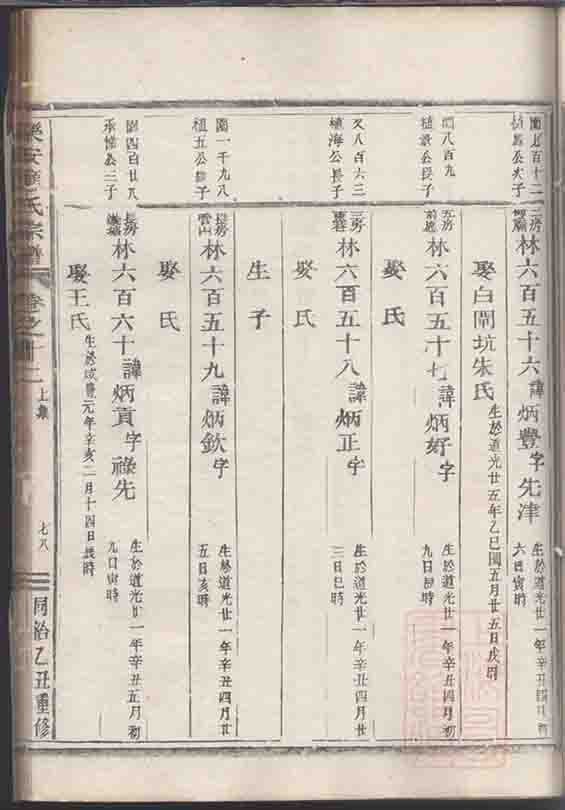 園七百十二
公次子
林六百五十六諱炳豐字先津
生於道光廿一年辛丑四月廿
六日寅時
娶白閘坑朱氏
生於道光廿五年乙巳閏五月廿五日戌時
八百九
植公長子
房
林六百五十七諱炳好字
生於道光廿一年辛丑四月初
九日時
娶氏
又八百六三
植海公長子
三房
林六百五十八諱炳正字
生於道光廿一年辛丑四月廿
三日巳時
娶氏
生子
園一千九八
植五公子
長房
雲山
林六百五十九諱炳欽字
生於道光廿一年辛丑四月廿
五日亥時
娶氏
園四百廿八
承惟公三子
長房
林六百六十諱炳貢字祿先
生於道光廿一年辛丑五月初
九日寅時
娶王氏
生於咸豐元年辛亥二月十四日辰時
樂安孫氏宗譜
卷之十二
上集
七八
同治乙丑重修